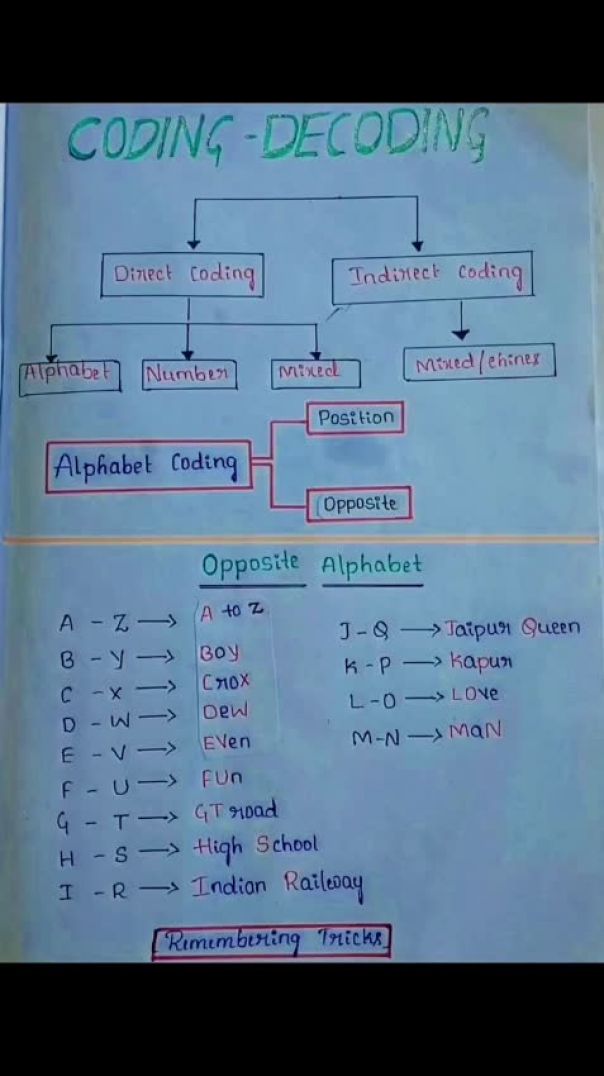 CODING-DECODING
Direct Coding
Indirect Coding
Alphabet
Number
Mixed
Mixed/chines
Alphabet Coding
Position
Opposite
Opposite Alphabet
A - Z → A to Z
B - Y → BOY
C - X → Crox
D - W → DeW
E - V → EVen
F - U → FUn
G - T → GT road
H - S → High School
I - R → Indian Railway
J - Q → Jaipur Queen
K - P → Kapur
L - O → LOve
M-N → MaN
Remembering Tricks